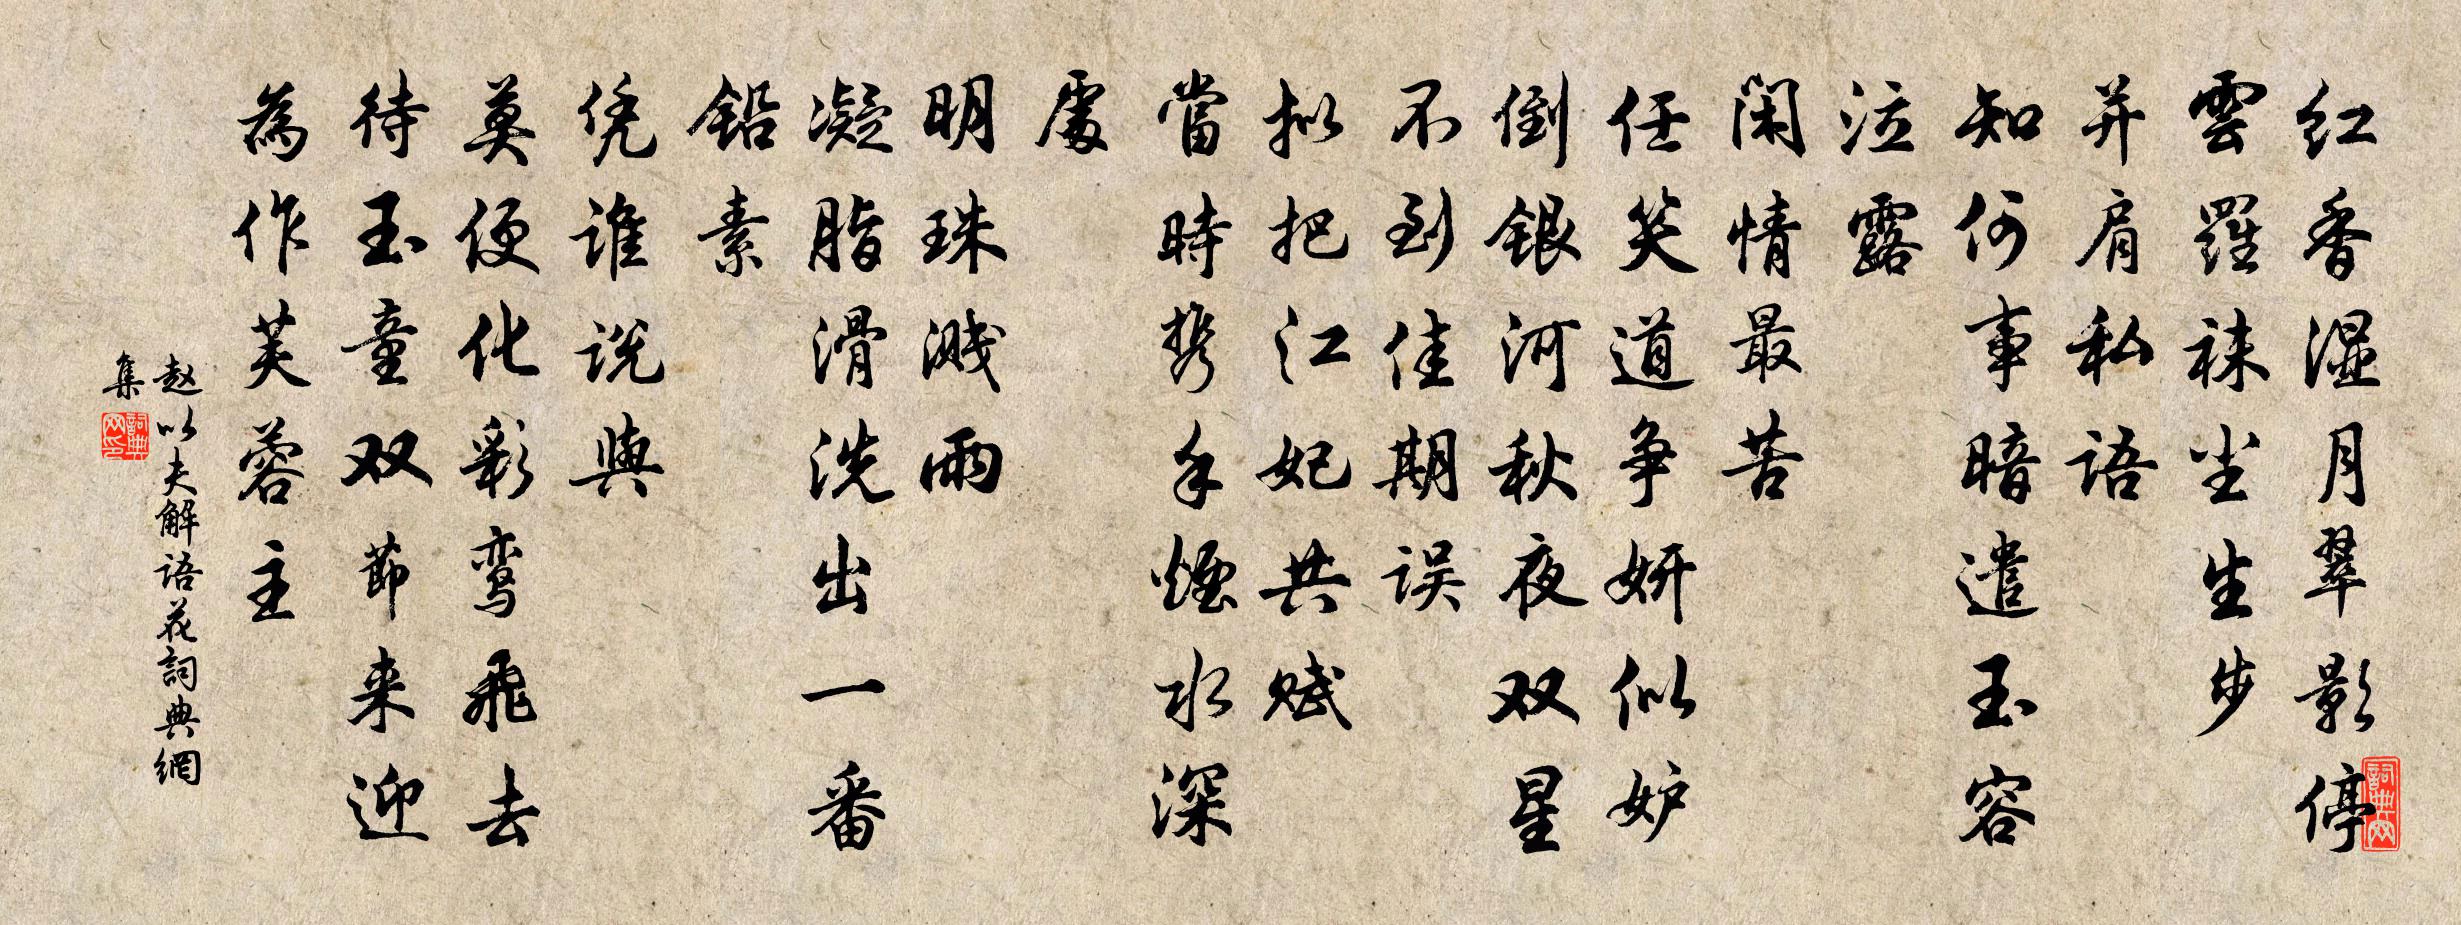 红香湿月翠影停
雲羅袜尘生步
并肩私语
知何事暗遣玉容
泣露
闲情最苦
任笑道争妍似妒
倒银河秋夜双星
不到佳期误
拟把江妃共赋
當時携手烟水深
處
明珠溅雨
凝脂滑洗出一番
铅素
凭谁说與
莫便化彩鸾飛去
待玉童双节来迎
為作芙蓉主
赵以夫解语花詞典網
集
詞典网印
詞典网